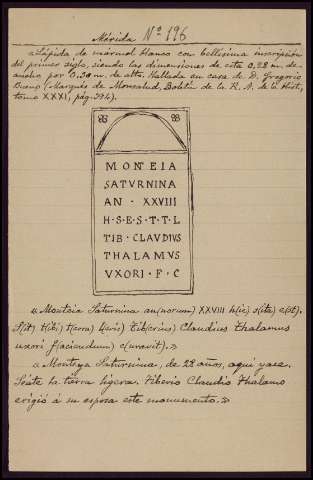 Mérida Nº 196
"Lápida de mármol blanco con bellísima inscripción
del primer siglo, siendo las dimensiones de esta 0,28 m. de
ancho por 0.30 m. de alto. Hallada en casa de D. Gregorio
Bueno (Marqués de Monsalud, Boletín de la R. A. de la Hist,
tomo XXXI, pág. 394).
MONTEIA
SATVRNINA
AN · XXVIII
H · S · E · S · T · T · L
TIB · CLAVDIVS
THALAMVS
VXORI · F · C
"Monteia Saturnina an(norum) XXVIII h(ic) s(ita) e(st).
S(it) t(ibi) t(erra) l(evis) tib(erius) Claudius thalamus
uxori f(aciendum) c(uravit).»
"Monteya Saturnina, de 28 años, aquí yace.
Séate la tierra ligera. Tiberio Claudio Thalamo
erigió á su esposa este monumento.»